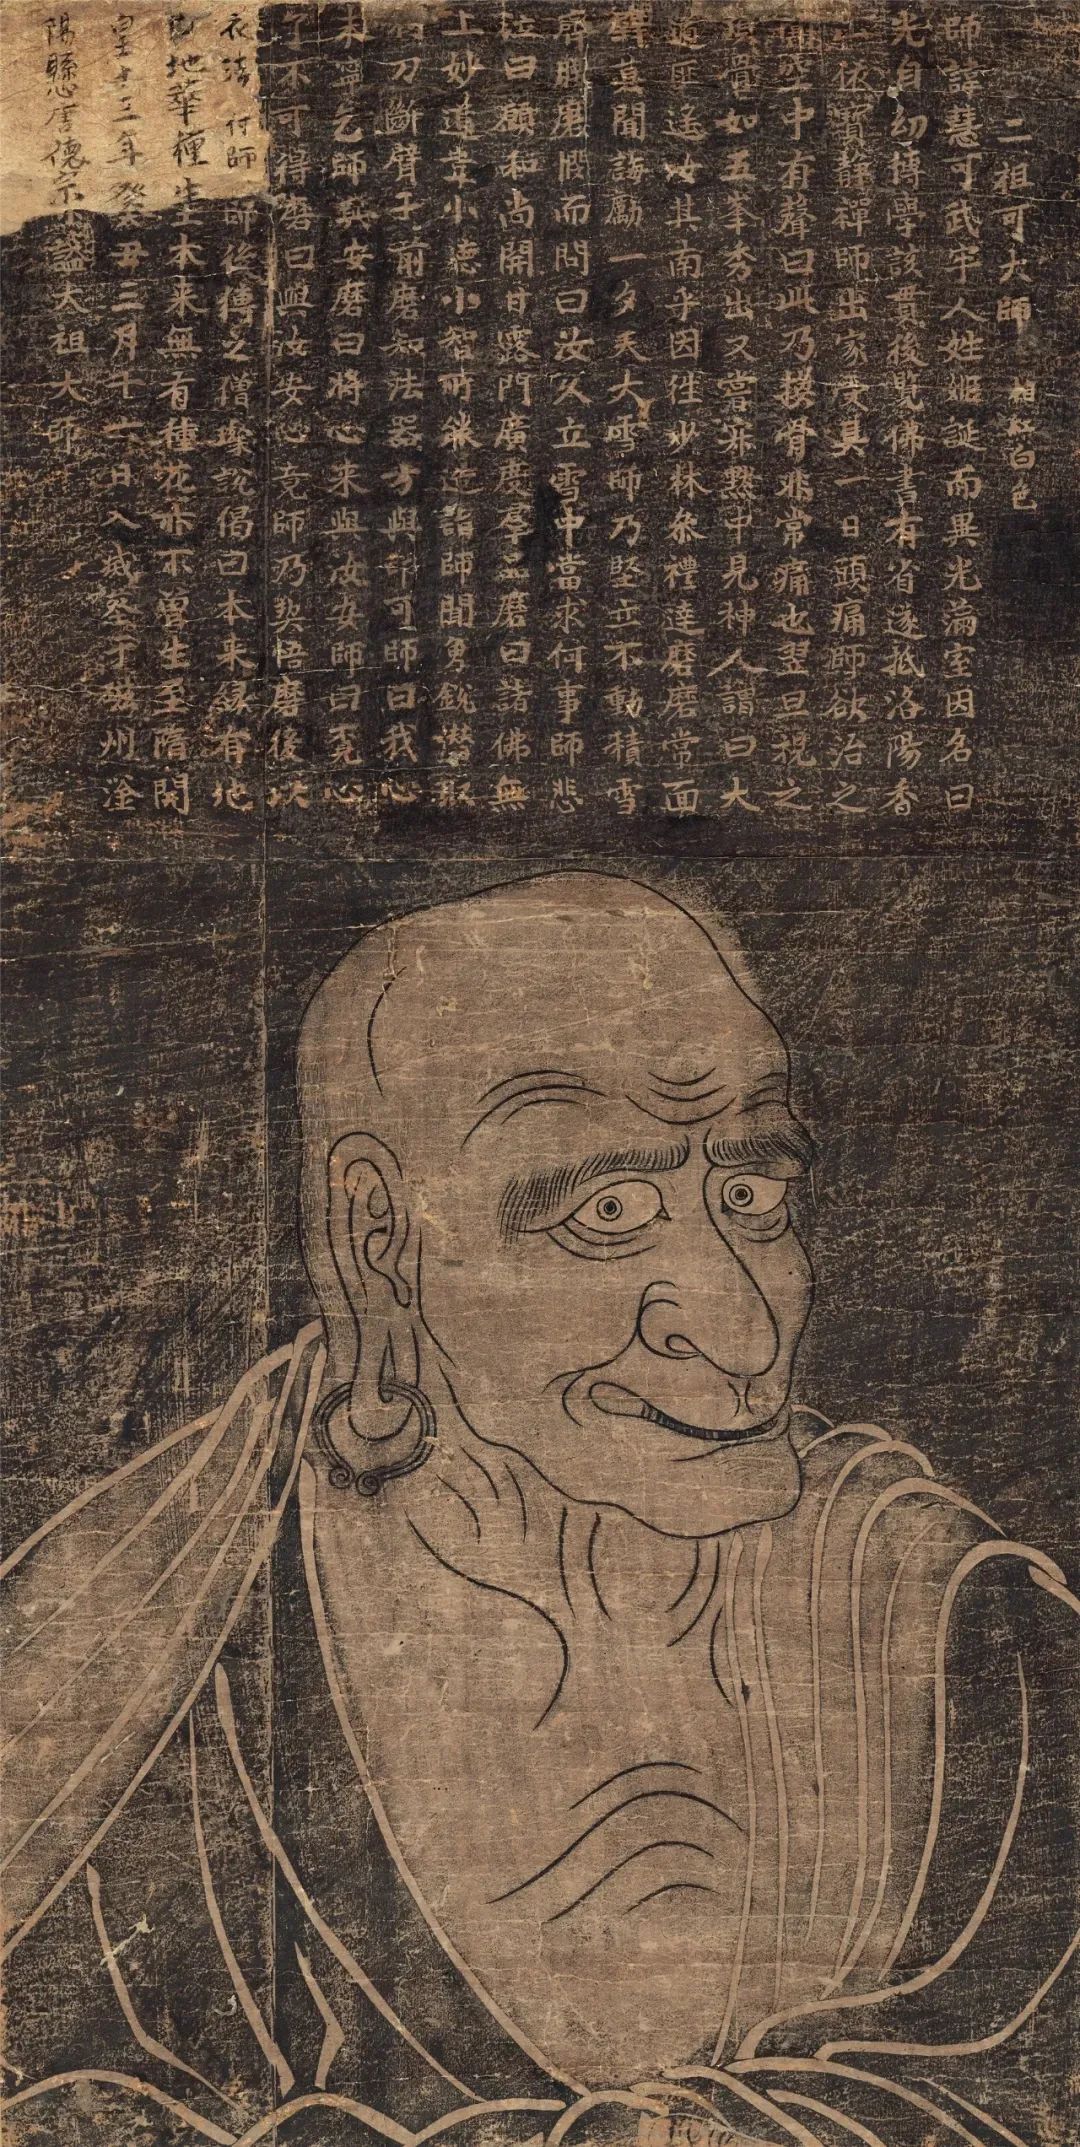 二祖可大師 相白色
師諱慧可武牢人姓姬誕而異光滿室因名曰
光自幼博學該貫後覽佛書有省遂抵洛陽香
山依寶靜禪師出家受具一日頭痛師欲治之
聞空中有聲曰此乃換骨非常痛也翌旦視之
頂骨如五峯秀出又嘗於默中見神人謂曰大
道匪遙汝其南乎因徃少林叅禮達磨磨常面
壁莫聞誨勵一夕天大雪師乃堅立不動積雪
齊腰磨愍而問曰汝久立雪中當求何事師悲
泣曰願和尚開甘露門廣度羣品磨曰諸佛無
上妙道豈小德小智所造詣師聞勇銳潛取
利刀斷臂于前磨知法器方與可師曰我心
未寧乞師與安磨曰將心來與汝安師曰覓心
了不可得磨曰與汝安心竟師乃契悟磨後以
衣法付師師後傳之僧璨說偈曰本來緣有地
因地華種生本來無有種花亦不曾生至隋開
皇十三年癸丑三月十六日入滅葬于磁州滏
陽縣唐德宗諡大祖大師